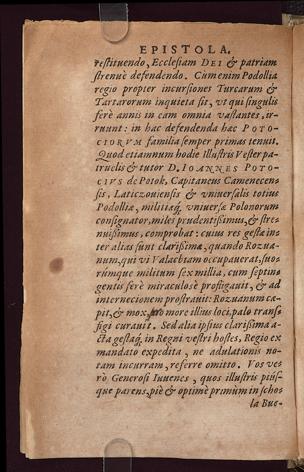 EPISTOLA.
restituendo, Ecclesiam DEI & patriam
strenuè defendendo. Cùm enim Podollia
regio propter incursiones Turcarum &
Tartarorum inquieta sit, vt qui singulis
ferè annis in eam omnia vastantes, ir-
ruunt: in hac defendenda hac POTO-
CIORVM familia semper primas tenuit.
Quod etiamnum hodie Illustris Vester pa-
truelis & tutor D. IOANNES POTO-
CIVS de Potok, Capitaneus Camenecen-
sis, Laticzouiensis & vniuersalis totius
Podolliæ, militiæq́; vniuersæ Polonorum
consignator, miles prudentißimus, & stre-
nuißimus, comprobat: cuius res gestæ in-
ter alias sunt clarißimæ, quando Rozua-
num, qui vi Valachiam occupauerat, suo-
rúmque militum sex millia, cum septin-
gentis ferè miraculosè profligauit, & ad
internecionem prostrauit: Rozuanum ca-
pit, & mox, more illius loci, palo transfi-
figi curauit. Sed alia ipsius clarißima a-
cta gestaq́; in Regni vestri hostes, Regio ex
mandato expedita, ne adulationis no-
tam incurram, referre omitto. Vos ve-
rò Generosi Iuuenes, quos illustris piús-
que parens, piè & optimè primùm in scho-
la Bue-